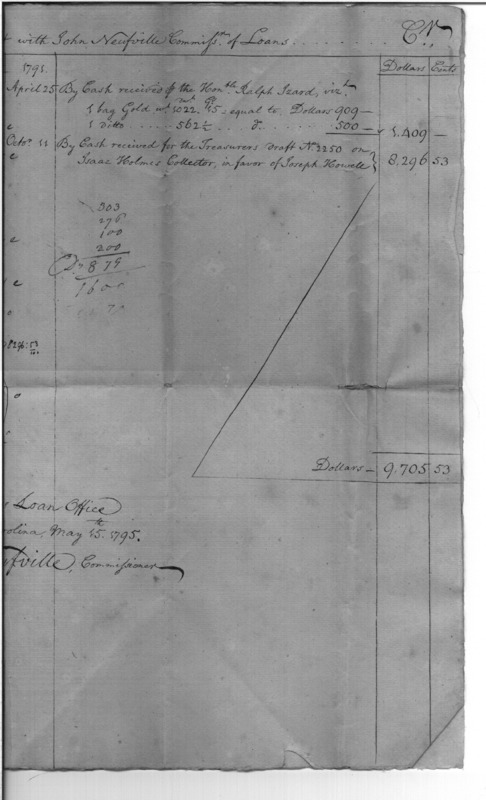 t with John Neufville Commissr. of Loans . . . . . . . . . . Cr.
1791. Dollars Cents
April 25 By Cash received of the Honble. Ralph Izard, vizt.
1 bag Gold wt. 1022. 15 equal to Dollars 909 —
1 ditto . . . . . 562½ . . . do. . . . . . . . . 500 — 1.409 —
Octor. 11 By Cash received for the Treasurers Draft No. 2250 on
Isaac Holmes Collector, in favor of Joseph Howell } 8,296 53
303
276
100
200
879
1600
8296:53
Dollars — 9,705 53
Loan Office
rolina, May 15th. 1795.
fville, Commissioner